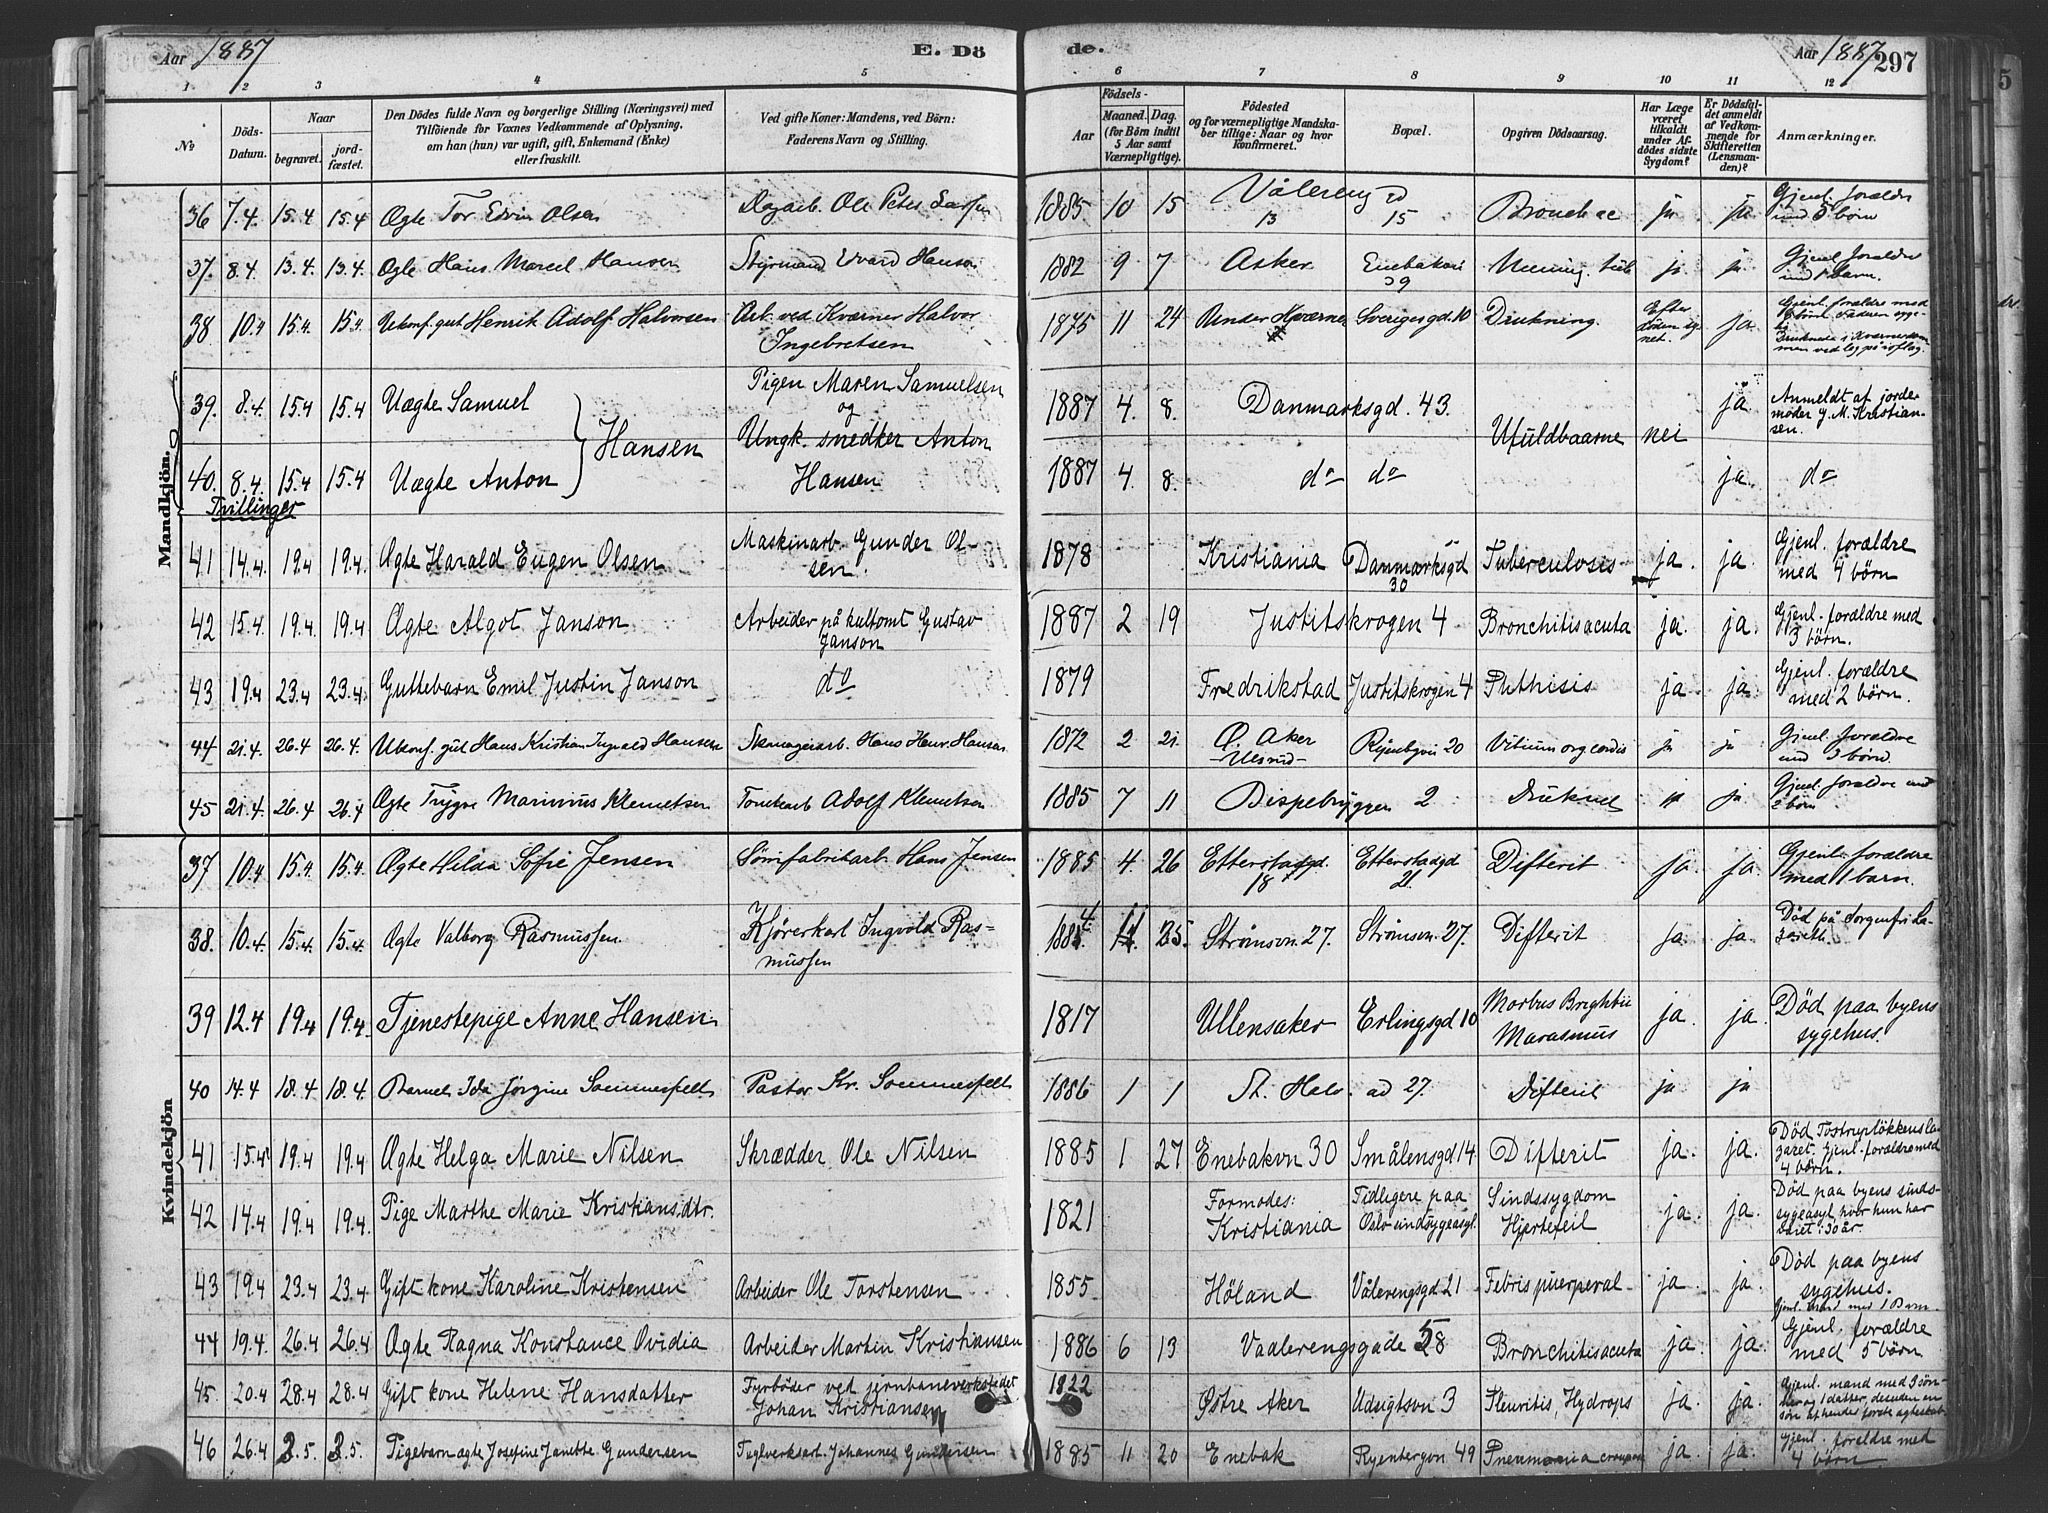 Aar 1887 E. Dö de. Aar 1887 297
1 2 3 4 5 6 7 8 9 10 11 12
No
Döds-Datum.
Naar
begravet.
jordfæstet.
Den Dödes fulde Navn og borgerlige Stilling (Næringsvei) med
Tilföiende for Voxnes Vedkommende af Oplysning,
om han (hun) var ugift, gift, Enkemand (Enke)
eller fraskilt.
Ved gifte Koner: Mandens, ved Börn:
Faderens Navn og Stilling.
Födsels-
Aar
Maaned. Dag.
(for Börn indtil
5 Aar samt
Værnepligtige).
Födested
og for værnepligtige Mandskaber tillige: Naar og hvor
Konfirmeret.
Bopæl.
Opgiven Dödsaarsag.
Har Læge
været
tilkaldt
under Afdödes sidste
Sygdom?
Er Dödsfaldet anmeldt
af Vedkommende for
Skifteretten
(Lensmanden)?
Anmærkninger.
Mandkjön.
36 7.4. 15.4 15.4 Ægte Tor Edvin Olsen Dagarb. Ole Peter 1885 10 15 Vålereng 13 15 ja ja Gjenl. foraldre med 5 børn
37. 8.4. 13.4. 13.4. Ægte Hans Marcel Hansen Styrmand Hansen 1882 9 7 Asker 39 ja ja Gjenl. foraldre med 1 barn.
38 10.4 15.4. 15.4 Ukonf. gut Henrik Adolf Halvorsen Arb. ved Kværner Halvor
Ingebretsen 1875 11 24 Under Kværner Sverigesgd. 10 Drukning. Efter døden ja Gjenl. forældre med børn
39. 8.4. 15.4 15.4 Uægte Samuel } Hansen Pigen Maren Samuelsen
og
Ungk. snedker Anton
Hansen 1887 4. 8. Danmarksgd. 43. Ufuldbaarne nei ja Anmeldt af jordemoder M. Kristiansen.
40. 8.4. 15.4 15.4 Uægte Anton 1887 4. 8. do do ja. do
Tvillinger
41 14.4. 19.4 19.4. Ægte Harald Eugen Olsen Maskinarb. Gunder Olsen. 1878 Kristiania Danmarksgd 30 Tuberculosis ja. ja. Gjenl. forældre med 4 børn
42 15.4. 19.4. 19.4 Ægte Algot Janson Arbeider på kultomt Gustav
Janson 1887 2 19 Justitskrogen 4 Bronchitis acuta ja. ja. Gjenl. forældre med 3 børn.
43 19.4 23.4 23.4. Guttebarn Emil Justin Janson do 1879 Fredrikstad Justitskrogen 4 Phthisis ja. ja. Gjenl. forældre med 2 børn.
44 21.4. 26.4. 26.4. Ukonf. gut Hans Kristian Ingvald Hansen Skomagerarb. Hans Henr. Hansen 1872 2 21. Ø. Aker Ulsrud 20 Vitium org cordis ja ja Gjenl. forældre med 3 børn.
45 21.4. 26.4 26.4 Ægte Trygve Marinius Klemetsen Adolf Klemetsen 1885 7 11 Bispebryggen 2 Druknet ja Gjenl. forældre med 2 børn
Kvindekjön
37 10.4 15.4. 15.4. Ægte Hilda Sofie Jensen Sømfabrikarb. Hans Jensen 1885 4. 26 Etterstadgd. 18 Etterstadgd 21. Difterit ja. ja. Gjenl. forældre med 1 barn.
38. 10.4. 15.4. 15.4. Ægte Valborg Rasmussen. Kjørerkarl Ingvold Rasmussen 1884 11 25. Strømsvn. 27. Strømsvn. 27. Difterit ja. ja. Død på Sorgenfri Lazareth.
39 12.4 19.4 19.4. Tjenestepige Anne Hansen 1817 Ullensaker Erlingsgd 10 Morbus Brightii
Marasmus ja. ja. Død paa byens
sygehus.
40 14.4 18.4 18.4. Barnet Ida Jørgine Sommerfelt Pastor Kr. Sommerfelt 1886 1 1 St. Halv. ad 27. Difterit ja ja
41 15.4 19.4 19.4 Ægte Helga Marie Nilsen Skrædder Ole Nilsen 1885 1 27 Enebakvn 30 Smålensgd 14 Difterit ja. ja. Død Tostrupløkkens Lazaret. Gjenl. forældre med
4 børn.
42 14.4 19.4 19.4. Pige Marthe Marie Kristiansdtr. 1821 Formodes:
Kristiania Tidligere paa
Oslo sindsygeasyl. Sindssygdom
Hjertefeil ja. ja. Død paa byens sindssygeasyl hvor hun har
været i 30 år.
43 19.4 23.4 23.4 Gift kone Karoline Kristensen Arbeider Ole Torstensen 1855 Höland Vålerengsgd 21 Febris puerperal- ja ja. Død paa byens
sygehus.
Gjenl. mand med 1 Barn
44 19.4. 26.4 26.4 Ægte Ragna Konstance Ovidia Arbeider Martin Kristiansen 1886 6 13 Vaalerengsgade 58 Bronchitis acuta ja. ja. Gjenl. forældre
med 5 børn
45 20.4 28.4 28.4 Gift kone Helene Hansdatter Fyrbøder ved jernbaneverkstedet
Johan Kristiansen 1822 Østre Aker Udsigtsvn 3 Pleuritis, Hydrops ja. ja. Gjenl. mand med 3 sønner og 1 datter, desuden en
søn af hendes første ægteskab
46 26.4 3.5. 3.5. Pigebarn ægte Josefine Janette Gundersen Teglverksarb. Johannes Gundersen 1885 11 20 Enebak Ryenbergvn 49 Pneumonia crouposa ja. ja. Gjenl. forældre med
4 børn.